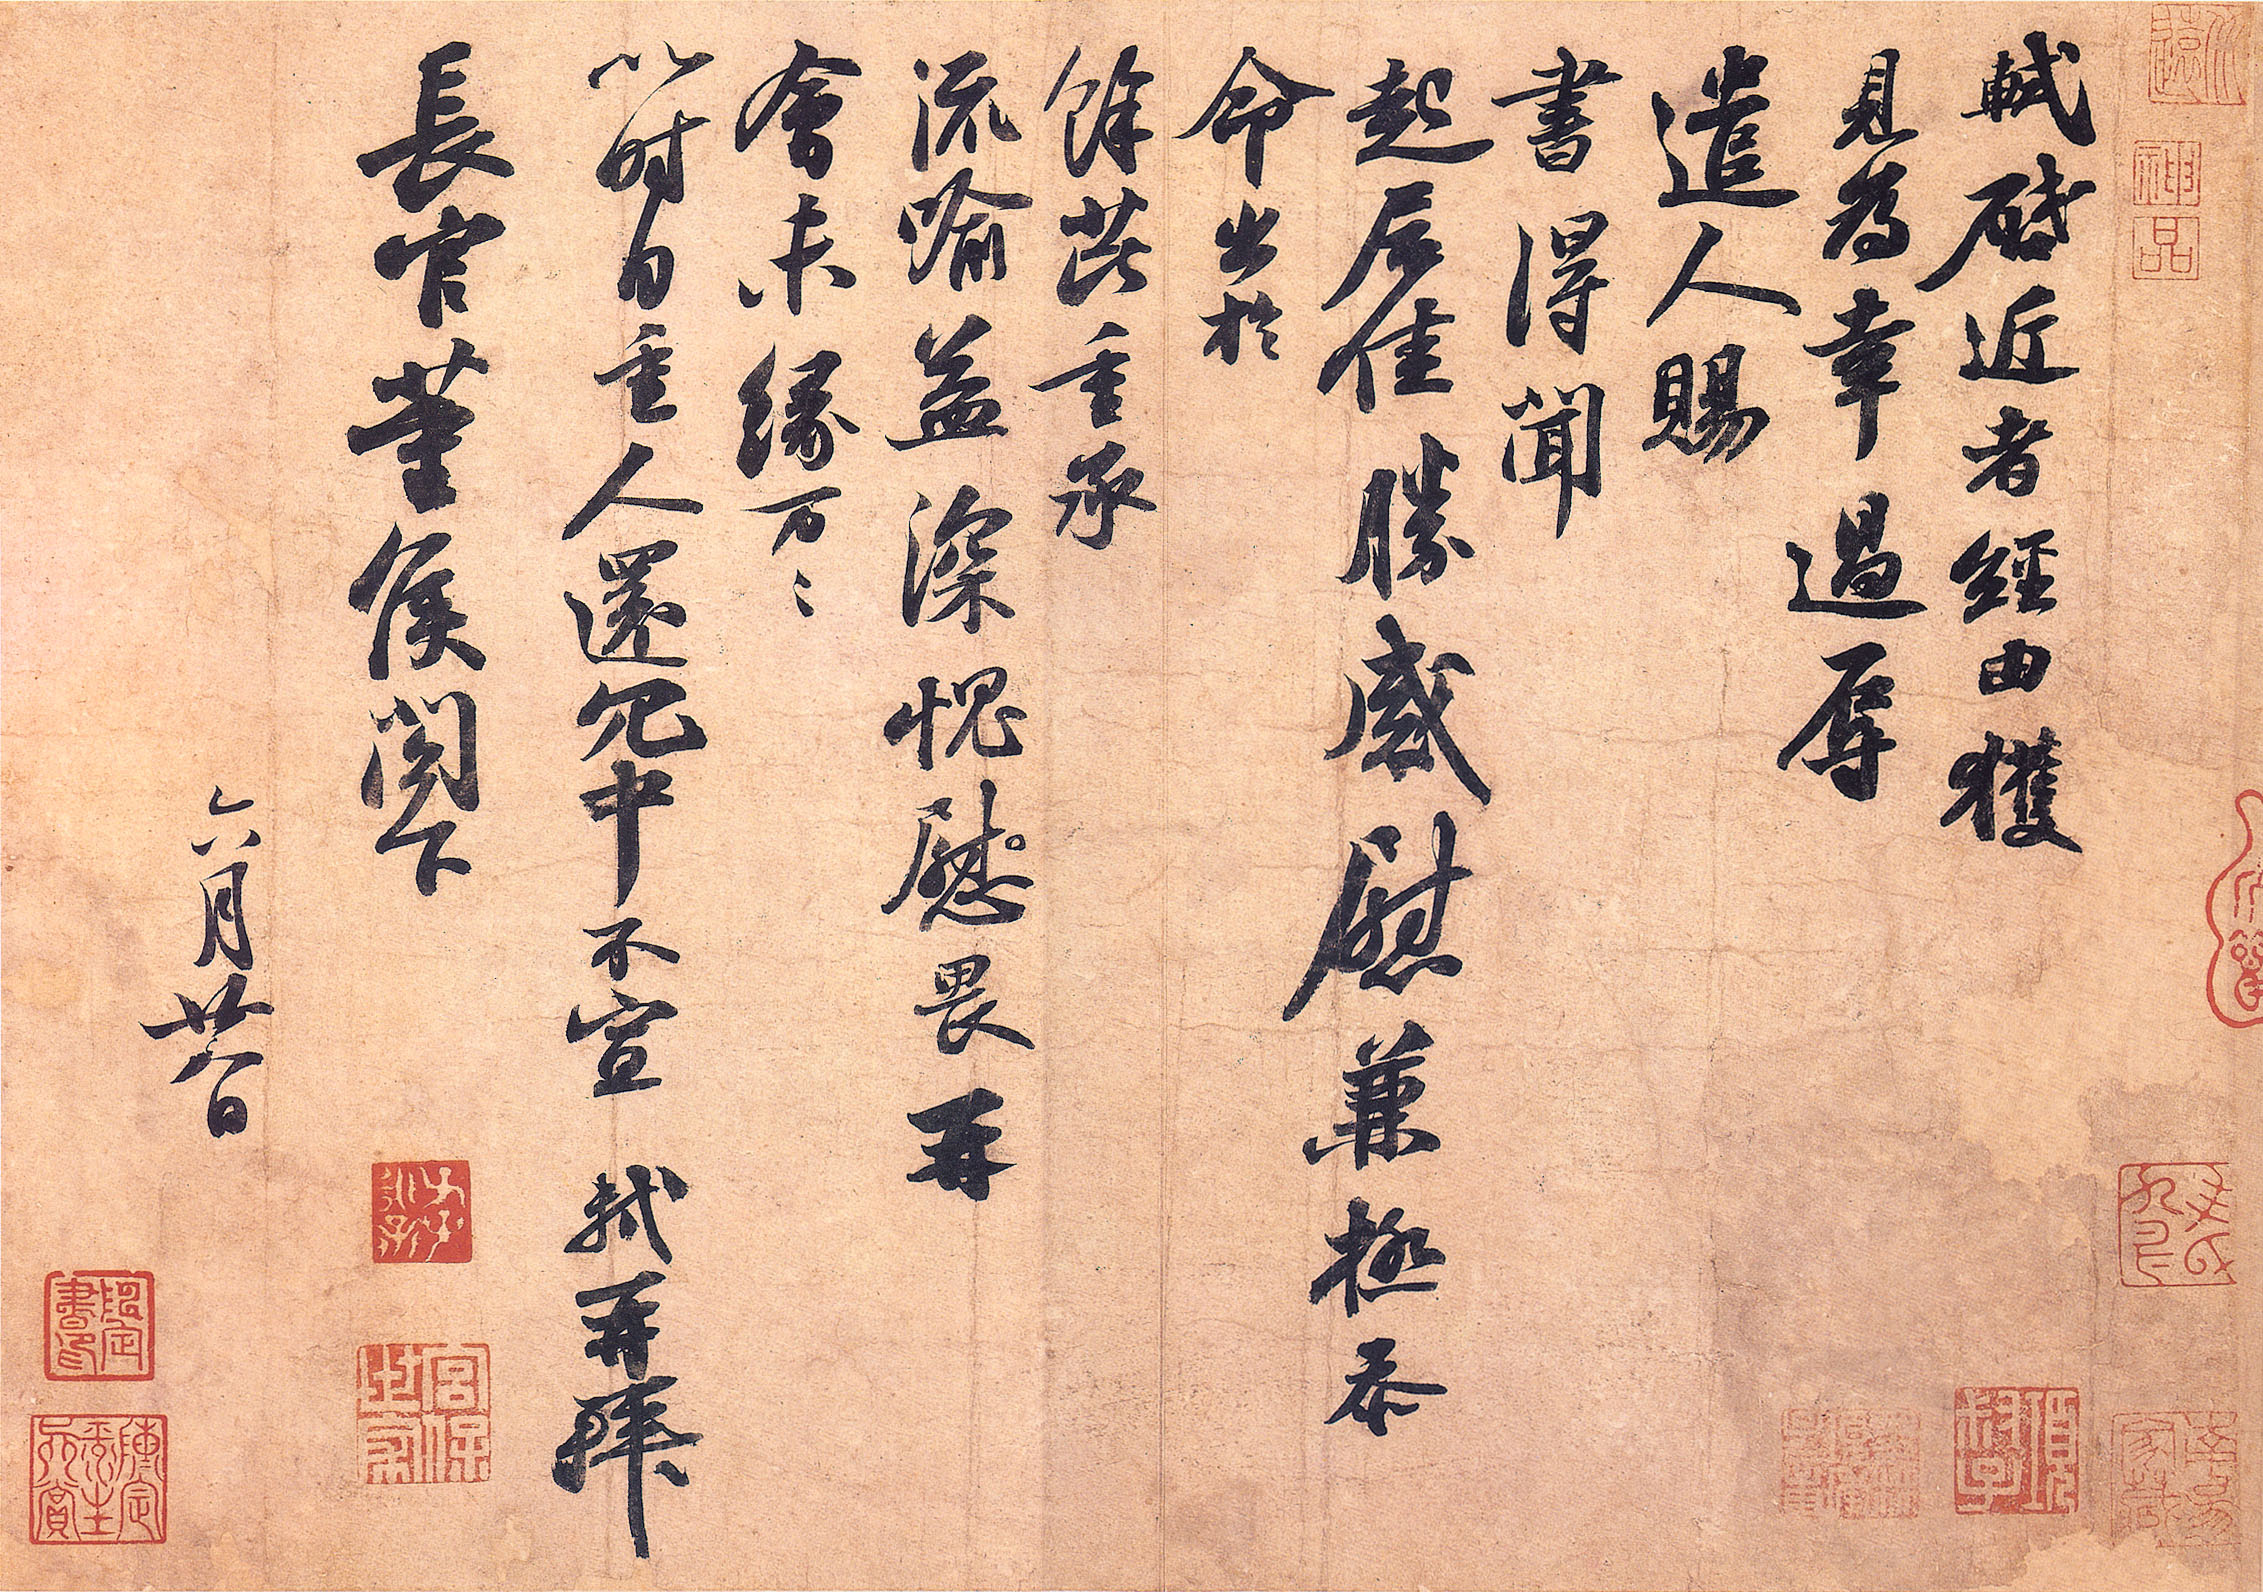 神品
軾啓近者經由獲
見為幸過辱
遣人賜
書得聞
起居佳勝感慰兼極忝
命出於
餘芘重承
流喻益深愧慰畏再
會未緣万〻
以時自重人還冗中不宣 軾再拜
長官董侯閣下
六月廿八日
宮保世家